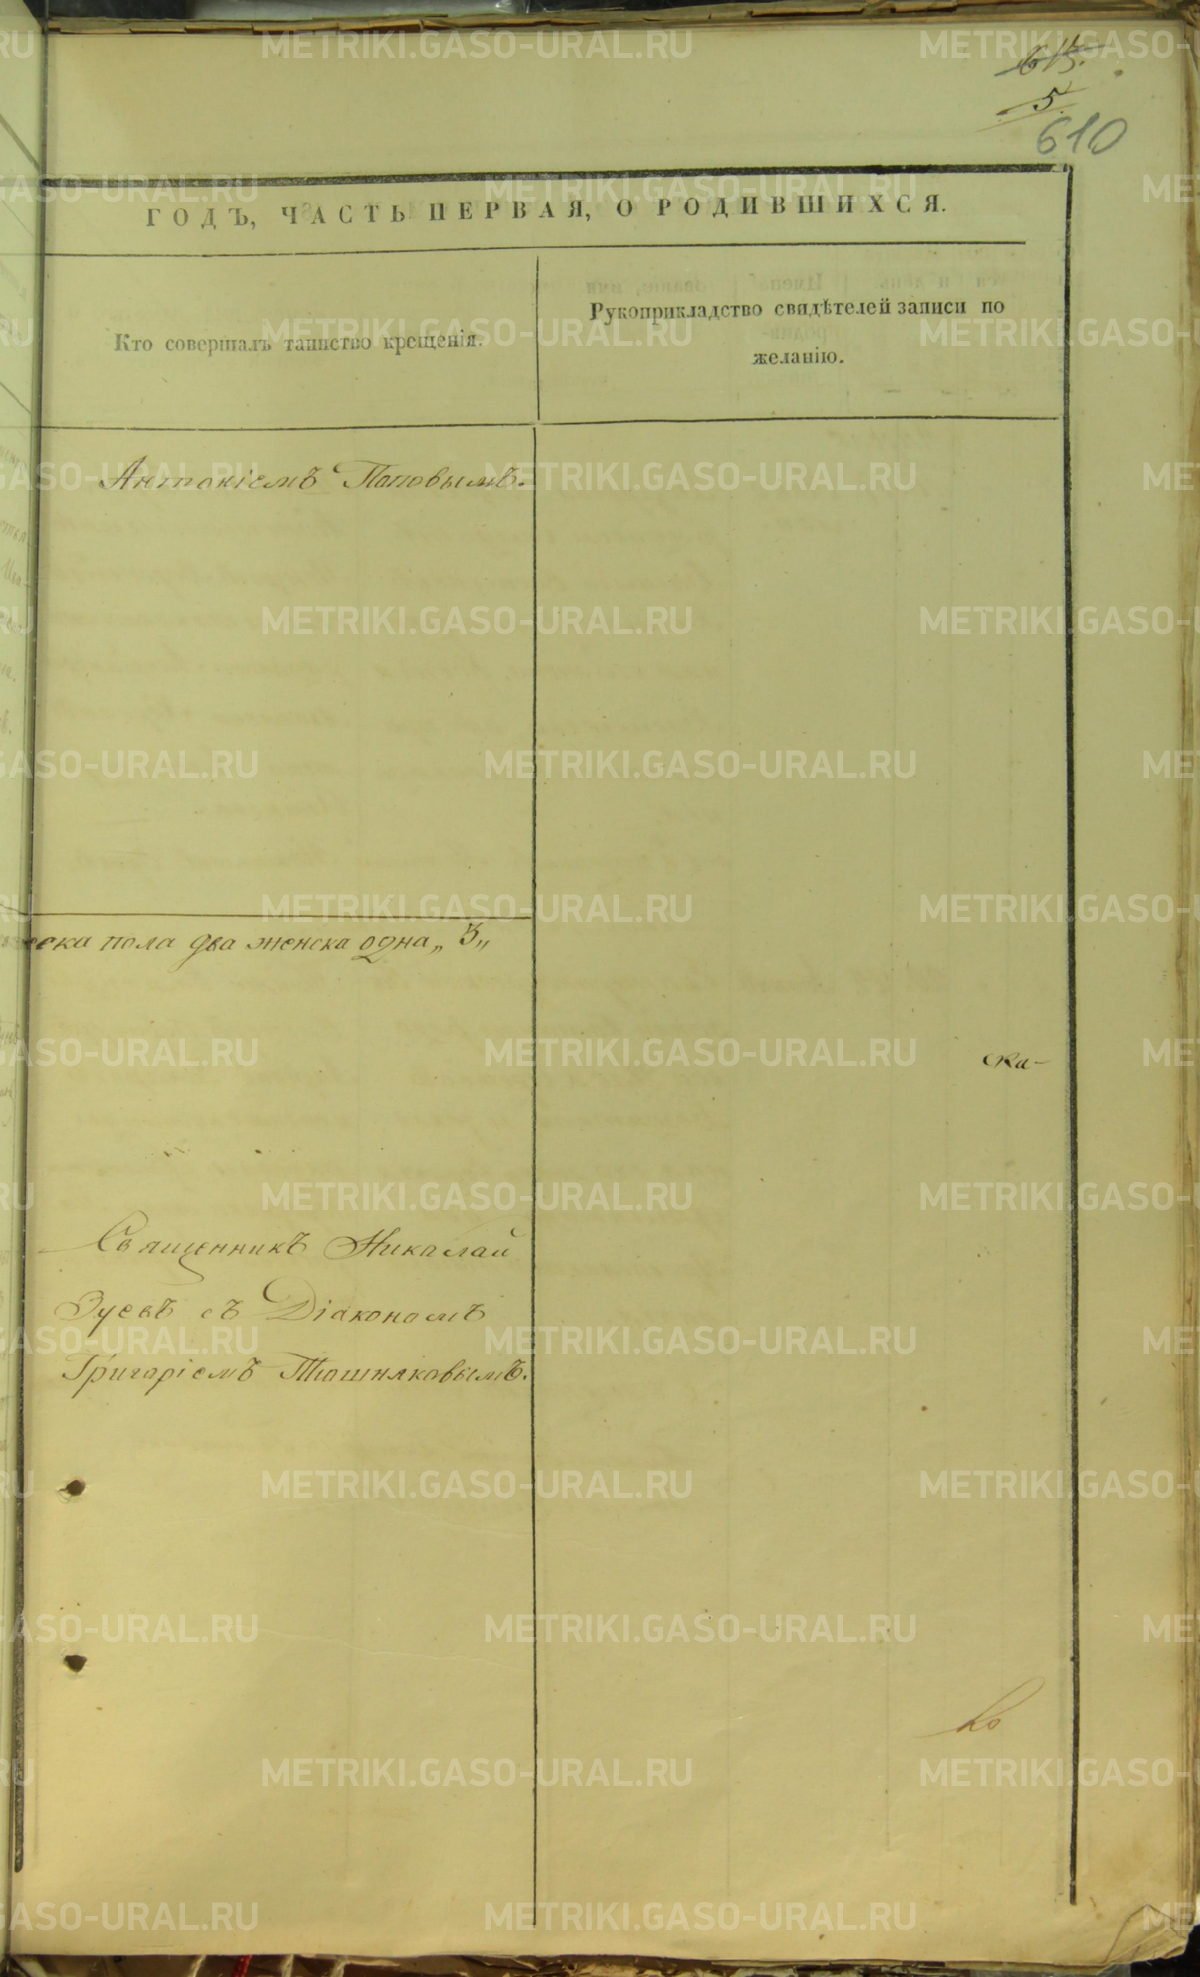 615.
5.
610
ГОДЪ, ЧАСТЬ ПЕРВАЯ, О РОДИВШИХСЯ.
Кто совершалъ таинство крещенія.
Рукоприкладство свидѣтелей записи по
желанію.
Антоніемъ Поповымъ.
еска пола два женска одна „ 3 „
ска-
Священникъ Николай
Зуевъ съ Діакономъ
Григоріемъ Тюшняковымъ.
METRIKI.GASO-URAL.RU